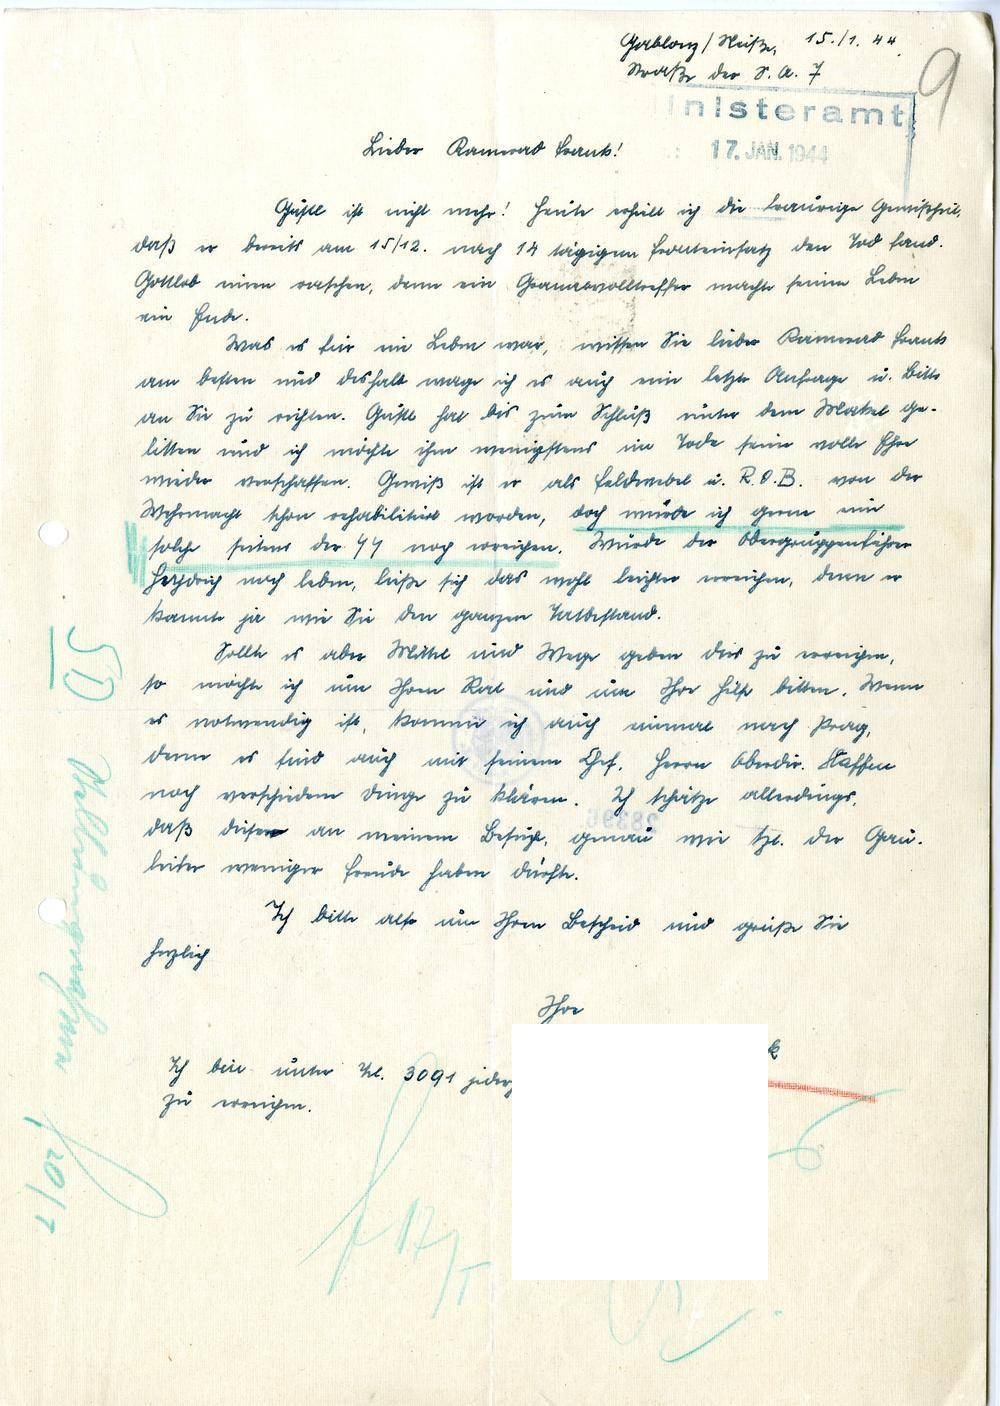 Gablonz/Neiße, 15./1. 44.
Straße der S.A. 7
9
inisteramt
17. JAN. 1944
Lieber Kamerad Frank!
Gustl ist nicht mehr! Heute erhielt ich die traurige Gewißheit,
daß er bereits am 15/12. nach 14 tägigem Fronteinsatz den Tod fand.
Gottlob einen raschen, denn ein Granatvolltreffer machte seinem Leben
ein Ende.
Was es für ein Leben war, wissen Sie lieber Kamerad Frank
am besten und deshalb wage ich es auch eine letzte Anfrage u. Bitte
an Sie zu richten. Gustl hat bis zum Schluß unter dem Makel ge-
litten und ich möchte ihm wenigstens im Tode seine volle Ehre
wieder verschaffen. Gewiß ist er als Feldwebel u. R.O.B. von der
Wehrmacht schon rehabilitiert worden, doch würde ich gerne eine
solche seitens der SS noch erreichen. Würde der Obergruppenführer
Heydrich noch leben, ließe sich das wohl leichter erreichen, denn er
kannte ja wie Sie den ganzen Tatbestand.
Sollte es aber Mittel und Wege geben dies zu erreichen,
so möchte ich um Ihren Rat und um Ihre Hilfe bitten. Wenn
es notwendig ist, komme ich auch einmal nach Prag,
denn es sind auch mit seinem Chef, Herrn Oberdir.
noch verschiedene Dinge zu klären. Ich schätze allerdings,
daß dieser an meinem Besuch, genau wie szt. der Gau-
leiter weniger Freude haben dürfte.
Ich bitte also um Ihren Bescheid und grüße Sie
herzlich
Ihre
k
Ich bin unter Tel. 3091 jederz
zu erreichen.
SD
Stellungnahme
20/1
17/I